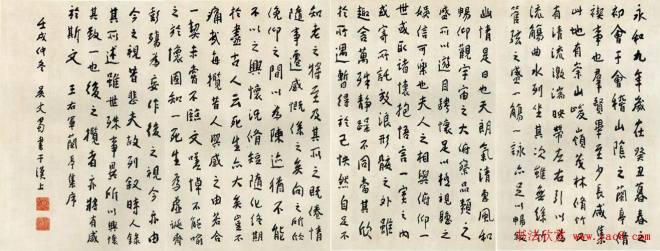 永和九年歲在癸丑暮春
初會于會稽山陰之蘭亭脩
禊事也羣賢畢至少長咸集
此地有崇山峻嶺茂林脩竹
又有清流激湍映帶左右引以為
流觴曲水列坐其次雖無絲竹
管弦之盛一觴一詠亦足以暢敘
幽情是日也天朗氣清惠風和
暢仰觀宇宙之大俯察品類之
盛所以遊目騁懷足以極視聽之
娛信可樂也夫人之相與俯仰一
世或取諸懷抱悟言一室之內
或因寄所託放浪形骸之外雖
趣舍萬殊靜躁不同當其欣
於所遇暫得於己快然自足不
知老之將至及其所之既倦情
隨事遷感慨係之矣向之所欣
俛仰之間以為陳迹猶不能
不以之興懷況脩短隨化終期
於盡古人云死生亦大矣豈不
痛哉每攬昔人興感之由若合
一契未嘗不臨文嗟悼不能喻
之於懷固知一死生為虛誕齊
彭殤為妄作後之視今亦由今
之視昔悲夫故列敘時人錄
其所述雖世殊事異所以興懷
其致一也後之攬者亦將有感
於斯文 王右軍蘭亭集序
壬戌仲冬 吳文蜀書于漢上
书法欣赏